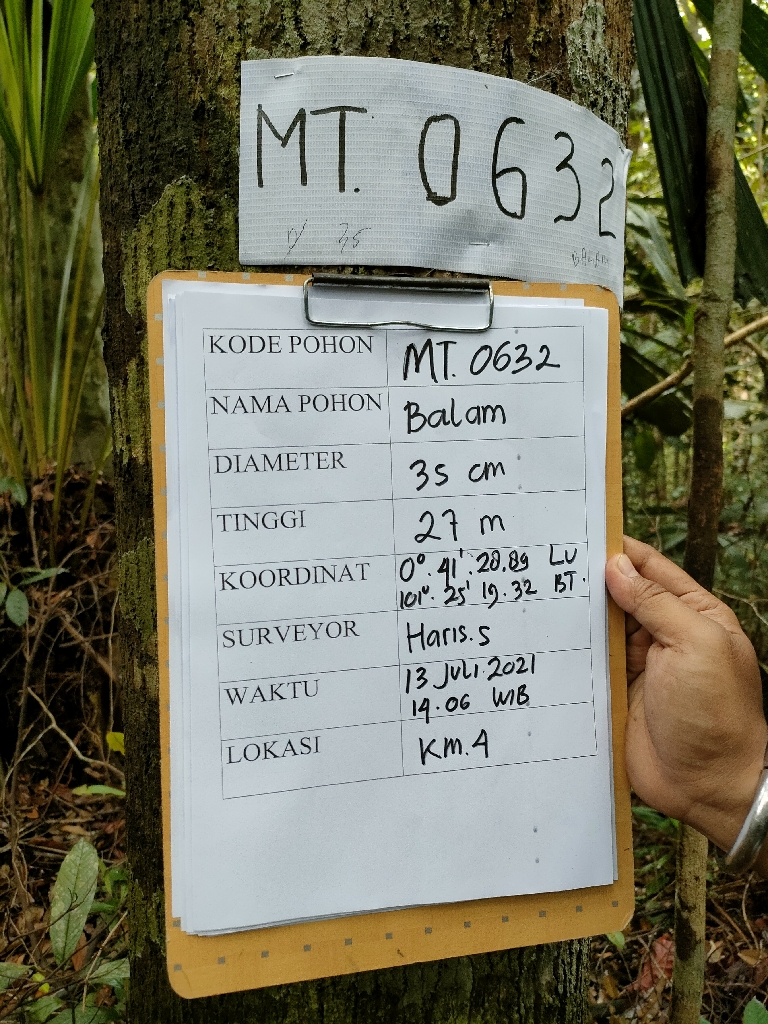 MT. 0632
35
KODE POHON MT. 0632
NAMA POHON Balam
DIAMETER 35 cm
TINGGI 27 m
KOORDINAT 0°. 41'. 28,89 LU
101°. 25' 19.32 BT.
SURVEYOR Haris.s
WAKTU 13 JULI.2021
14.06 WIB
LOKASI KM.4